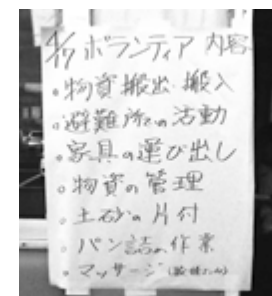 4/7 ボランティア 内容
・物資搬出・搬入
・避難所での活動
・家具の運び出し
・物資の管理
・土砂の片付
・パン詰め作業
・マッサージ